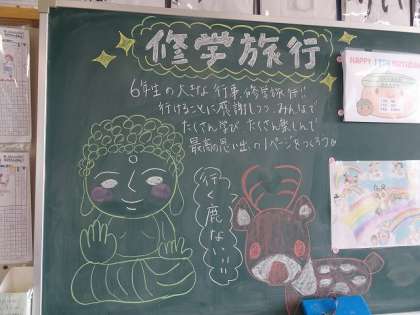 修学旅行
6年生の大きな行事、修学旅行!!
行けることに感謝しつつ、みんなで
たくさん学び、たくさん楽しんで
最高の思い出の1ページをつくろう
行く鹿ない!!
HAPPY